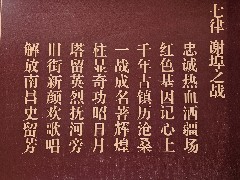 七律 谢埠之战
忠诚热血洒疆场
红色基因记心上
千年古镇历沧桑
一战成名著辉煌
柱显奇功昭日月
塔留英烈抚河旁
旧街新颜欢歌唱
解放南昌史留芳